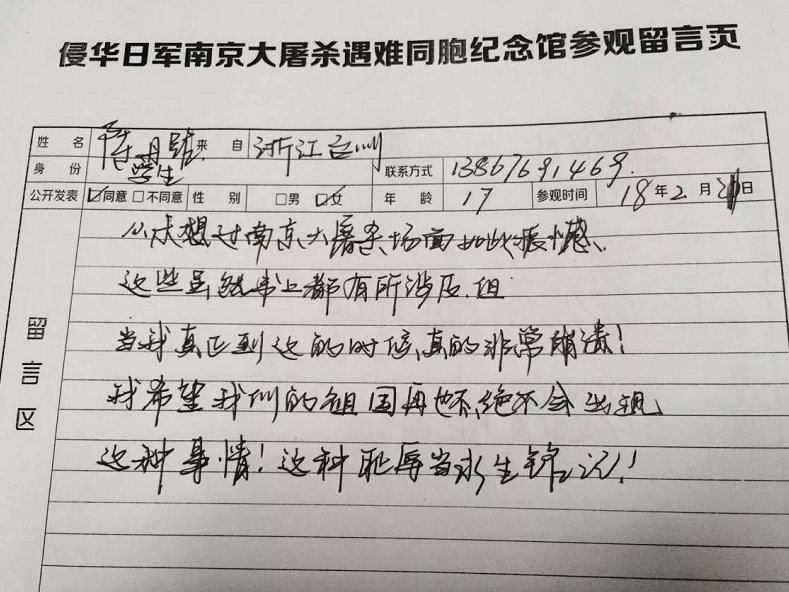 侵华日军南京大屠杀遇难同胞纪念馆参观留言页
姓 名 来 自 浙江台州
身 份 学生 联系方式 13867691469.
公开发表 ☑同意 □不同意 性 别 □男 ☑女 年 龄 17 参观时间 18年2月 日
留言区
从未想过南京大屠杀场面如此震憾、
这些虽然书上都有所涉及.但
当我真正到这的时候,真的非常崩溃!
我希望我们的祖国再也不、绝不会出现
这种事情!这种耻辱当永生铭记!